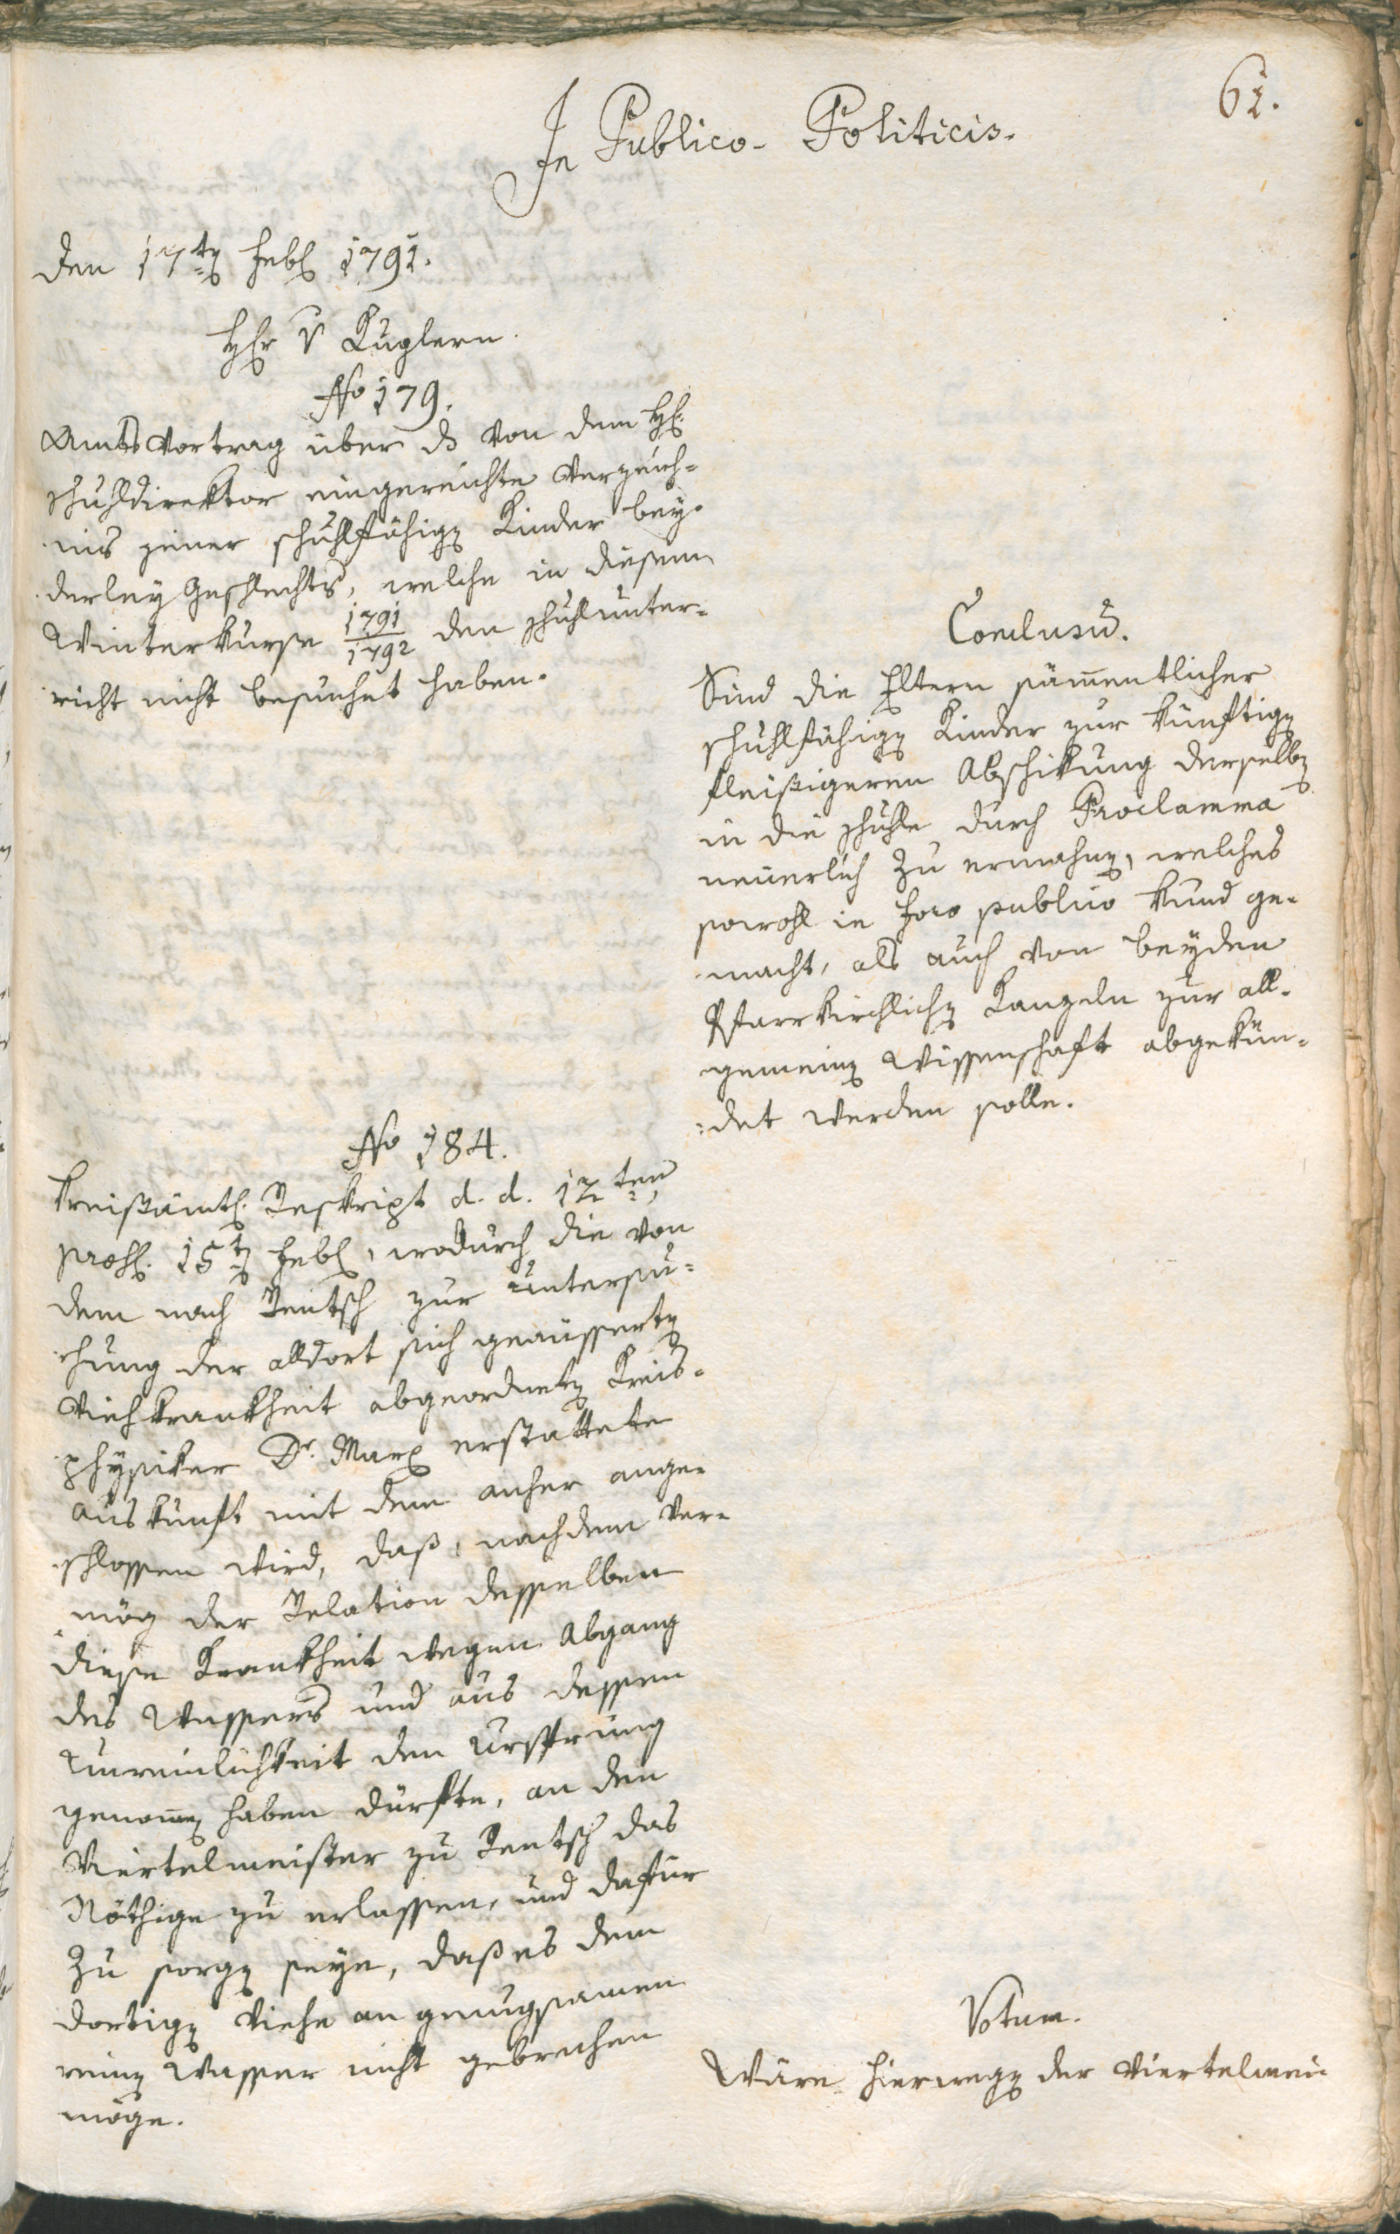 61.
In Publico-Politicis.
den 17t Febl 1791.
Hr v Kuglern.
No 179.
Amtsvortrag über ds von dem H.
Schuldirektor eingereichte Verzeich-
nis jener schuhlfähig Kinder bey-
derley Geschlechts, welche in diesem
Winterkurse 1791/1792 den Schuhlunter-
richt nicht besuchet haben.
Conclusū.
Sind die Eltern säm̄entlicher
schuhlfähig Kinder zur künftig
fleißigeren Abschikung derselb
in die Schuhle durch Proclamma
neuerlich zu ermahn, welches
sowohl in foro publico kund ge-
macht, als auch von beyden
Pfarrkirchlich Kanzeln zur all-
gemein Wissenschaft abgekün-
det werden solle.
No 184.
Kreisämtl. Reskript d. d. 12ten
15t Febl, wodurch die von
dem nach Rentsch zur Untersu-
chung der alldort sich geäussert
Viehkrankheit abgeordnet Kreis-
physiker Dr. Marx erstattete
Auskunft mit dem anher ange-
schlossen wird, daß, nachdem ver-
mög der Relation desselben
diese Krankheit wegen Abgang
des Wassers und aus dessen
Unreinlichkeit den Ursprung
genom̄ haben dürfte, an den
Viertelmeister zu Rentsch das
Nöthige zu erlassen, und dafür
zu sorg seye, daß es dem
dortig Viehe an genugsamen
rein Wasser nicht gebrechen
möge.
Votum.
Wäre hierweg der Viertelmei